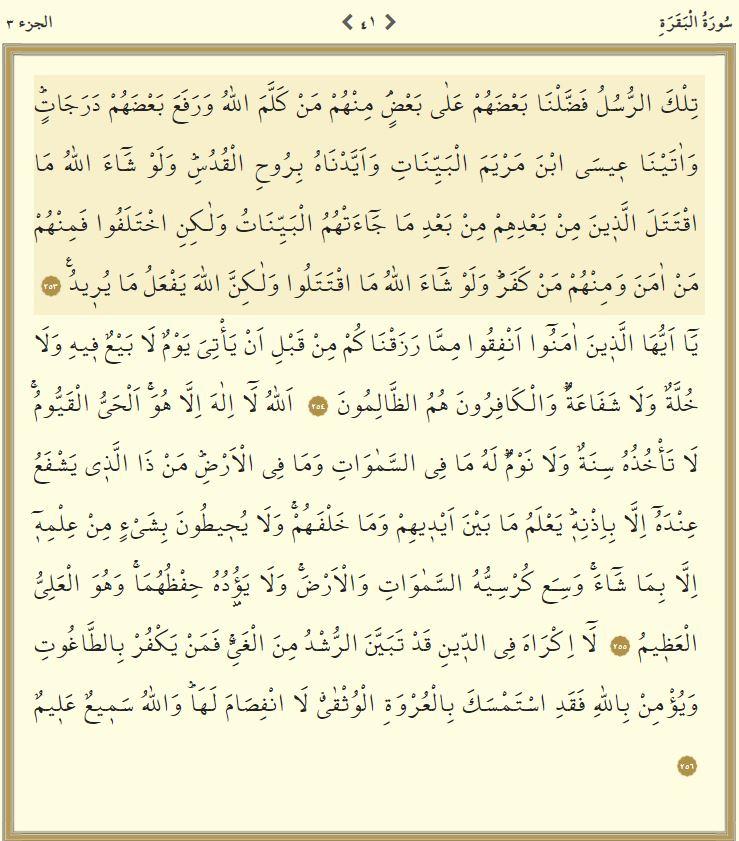 سُورَةُ الْبَقَرَةِ ٤١ الجزء ٣
تِلْكَ الرُّسُلُ فَضَّلْنَا بَعْضَهُمْ عَلٰى بَعْضٍۢ مِنْهُمْ مَنْ كَلَّمَ اللّٰهُ وَرَفَعَ بَعْضَهُمْ دَرَجَاتٍۜ
وَاٰتَيْنَا ع۪يسَى ابْنَ مَرْيَمَ الْبَيِّنَاتِ وَاَيَّدْنَاهُ بِرُوحِ الْقُدُسِۜ وَلَوْ شَٓاءَ اللّٰهُ مَا
اقْتَتَلَ الَّذ۪ينَ مِنْ بَعْدِهِمْ مِنْ بَعْدِ مَا جَٓاءَتْهُمُ الْبَيِّنَاتُ وَلٰكِنِ اخْتَلَفُوا فَمِنْهُمْ
مَنْ اٰمَنَ وَمِنْهُمْ مَنْ كَفَرَۜ وَلَوْ شَٓاءَ اللّٰهُ مَا اقْتَتَلُوا وَلٰكِنَّ اللّٰهَ يَفْعَلُ مَا يُر۪يدُ۟ ٢٥٣
يَٓا اَيُّهَا الَّذ۪ينَ اٰمَنُٓوا اَنْفِقُوا مِمَّا رَزَقْنَاكُمْ مِنْ قَبْلِ اَنْ يَأْتِيَ يَوْمٌ لَا بَيْعٌ ف۪يهِ وَلَا
خُلَّةٌ وَلَا شَفَاعَةٌۜ وَالْكَافِرُونَ هُمُ الظَّالِمُونَ ٢٥٤ اَللّٰهُ لَٓا اِلٰهَ اِلَّا هُوَۚ اَلْحَيُّ الْقَيُّومُۚ
لَا تَأْخُذُهُ سِنَةٌ وَلَا نَوْمٌۜ لَهُ مَا فِي السَّمٰوَاتِ وَمَا فِي الْاَرْضِۜ مَنْ ذَا الَّذ۪ي يَشْفَعُ
عِنْدَهُٓ اِلَّا بِاِذْنِه۪ۜ يَعْلَمُ مَا بَيْنَ اَيْد۪يهِمْ وَمَا خَلْفَهُمْۚ وَلَا يُح۪يطُونَ بِشَيْءٍ مِنْ عِلْمِه۪ٓ
اِلَّا بِمَا شَٓاءَۚ وَسِعَ كُرْسِيُّهُ السَّمٰوَاتِ وَالْاَرْضَۚ وَلَا يَؤُ۫دُهُ حِفْظُهُمَاۚ وَهُوَ الْعَلِيُّ
الْعَظ۪يمُ ٢٥٥ لَٓا اِكْرَاهَ فِي الدّ۪ينِ قَدْ تَبَيَّنَ الرُّشْدُ مِنَ الْغَيِّۚ فَمَنْ يَكْفُرْ بِالطَّاغُوتِ
وَيُؤْمِنْ بِاللّٰهِ فَقَدِ اسْتَمْسَكَ بِالْعُرْوَةِ الْوُثْقٰىۗ لَا انْفِصَامَ لَهَاۜ وَاللّٰهُ سَم۪يعٌ عَل۪يمٌ
٢٥٦